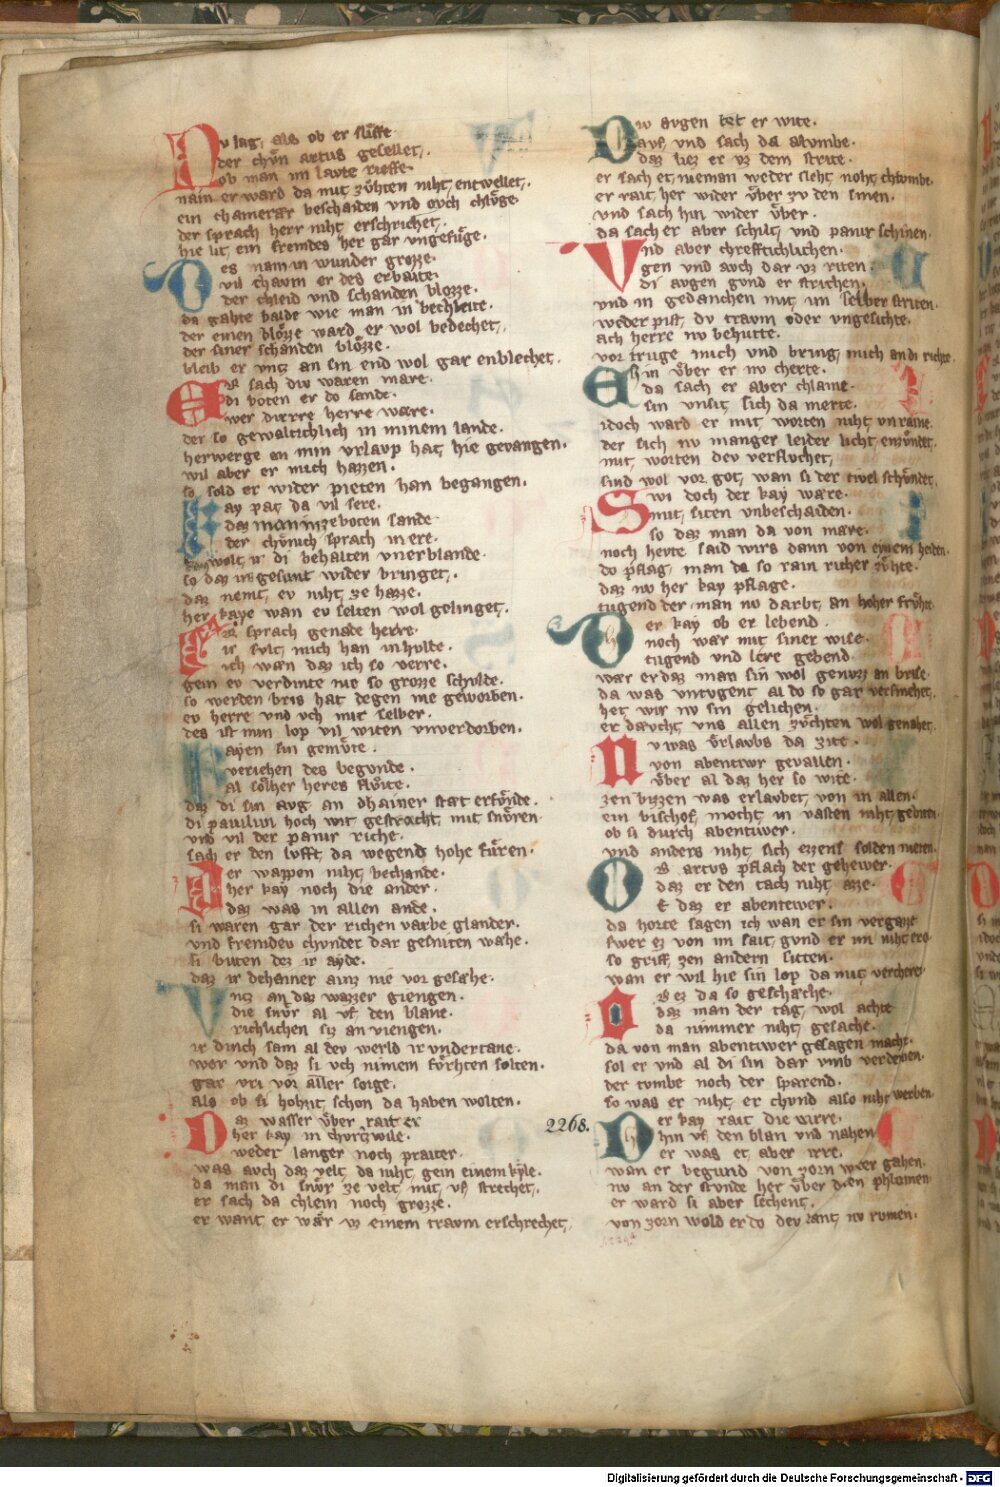 Nv lag, als ob er slieffe
der chvͤn artus gesellet,.
ob man im lavte rieffe
nain er ward da mit zvͤhten niht, entwellet,.
ein chamerær beschaiden vnd ovch chlvͤge
der sprach herr niht erschrichet,.
hie lit, ein fremdes her gar vngefuͤge.
Des nam in wunder grozze.
vil chavm er des erbaite.
der chleid vnd schanden blozze.
da gahte balde wie man in bechleite.
der einen blozze ward er wol bedechet,.
der siner schanden blozze.
bleib er vntz an sin end wol gar enblechet,.
Er sach div waren mare.
di boten er do sande.
wer dierre herre wære.
der so gewaltichlich in minem lande.
herwerge an min vrlavp hat, hie gevangen.
wil aber er mich hazzen.
so sold er wider pieten han begangen.
Kay pat, da vil sere.
daz man in ze boten sande
der chvnich sprach in ere.
wolt, ir di behalten vnerblande.
so daz ir gesunt wider bringet,.
daz nemt, ev niht, ze hazze.
her kaye wan ev selten wol gelinget,.
Er sprach genade herre.
ir svlt, mich han in hvlte.
ich wan daz ich so verre.
gein ev verdinte nie so grozze schvlde.
so werden bris hat degen nie geworben.
ev herre vnd vch mir selber.
des ist min lop vil witen vnverdorben.
Kayen sin gemvͤte.
verichen des begunde.
al solher heres flvͤte.
daz di sin avg an dhainer stat erfvͤnde.
di pavilun hoch wit gestracht, mit snvͤren
vnd vil der panir riche.
sach er den lvfft da wegend hohe fuͤren.
Der wappen niht, bechande.
her kay noch die ander.
daz was in allen ande.
si waren gar der richen varbe glander.
vnd fremdev chvnder dar gesniten wæhe.
si buten dez ir ayde.
daz ir dehainer ainz nie vor gesæhe.
Vntz an daz wazzer giengen.
die snvͤr al vf den blane.
richlichen siz an viengen.
ir dinch sam al dev werld ir vndertane.
wer vnd daz si vch nimem foͤrhten solten.
gar vri vor aller sorge.
als ob si hohzit, schon da haben wolten.
Daz wasser vͤber rait er
her kay in chvrtzwile.
weder langer noch praiter.
was avch daz velt, da niht, gein einem kyle.
da man di snvͤr ze velt, mit, vf strechet,.
er sach da chlein noch grozze.
er want, er wær vz einem travm erschrechet,
Div avgen tet er wite.
avf, vnd sach da alvmbe.
daz liez er vz dem strite.
er sach et, nieman weder sleht noht, chrvmbe.
er rait, her wider vͤber zv den sinen.
vnd sach hin wider vͤber.
da sach er aber schilt, vnd panir schinen.
Vnd aber chrefftichlichen.
vgen vnd avch dar vz riten.
di avgen gvnd er strichen.
vnd in gedanchen mit, im selber striten.
weder pist, dv travm oder vngesichte.
ach herre nv behutte.
vor truge mich vnd bring, mich an di richte.
Ehin vͤber er nv cherte.
da sach er aber chlaine.
sin vnsit, sich da merte.
idoch ward er mit, worten niht, vnraine.
der sich nv manger leider licht enzvndet,
mit, worten dev verfluchet,
sind wol vor got, wan si der tivel schvͤndet,
Swi doch der kay wære.
mit, siten vnbeschaiden.
so daz man da von mære.
noch hevte said wirs dann von eynem heiden.
do pflag, man da so rain richer zvͤhte.
daz nv her kay pflage.
tugend der man nv darbt, an hoher frvͤhte
Der kay ob er lebend.
noch wær mit siner wise.
tugend vnd lere gebend.
wær er daz man sin wol genvzz an brise.
da was vntugent al do so gar versinchet,
het, wir nv sin gelichen.
er dæucht vns allen zvͤchten wol genahet.
Nv was vͤrlaubs da zite.
von abentivr gevallen.
vͤber al daz her so wite.
zen bizzen was erlavbet, von in allen.
ein bischof, mocht, in vasten niht, gebiten
ob si durch abentiwer.
vnd anders niht, sich ezzens solden miten.
Ob artus pflach der gehewer.
daz er den tach niht, azze.
E daz er abentewer.
da horte sagen ich wan er sin vergazze
swer ez von im sait, gvnd er im niht ero
so griff, zen andern sitten.
wan er wil hie sin lop da mit, verchere
Ob ez da so geschæche.
daz man der tag, wol achte
da nimmer niht, gesache.
da von man abentiwer gesagen macht.
sol er vnd al di sin dar vmb verderben.
der tvmbe noch der sparend.
so was er niht, er chvnd also niht, werben.
2268.
Der kay rait die virre.
hin vf den blan vnd nahen
er was et, aber irre.
wan er begund von zorn wider gahen.
nv an der stvnde her vͤber dien phlomen
er ward si aber sechent,
von zorn wold er do dev lant, nv rvmen.
Digitalisierung gefördert durch die Deutsche Forschungsgemeinschaft - DFG